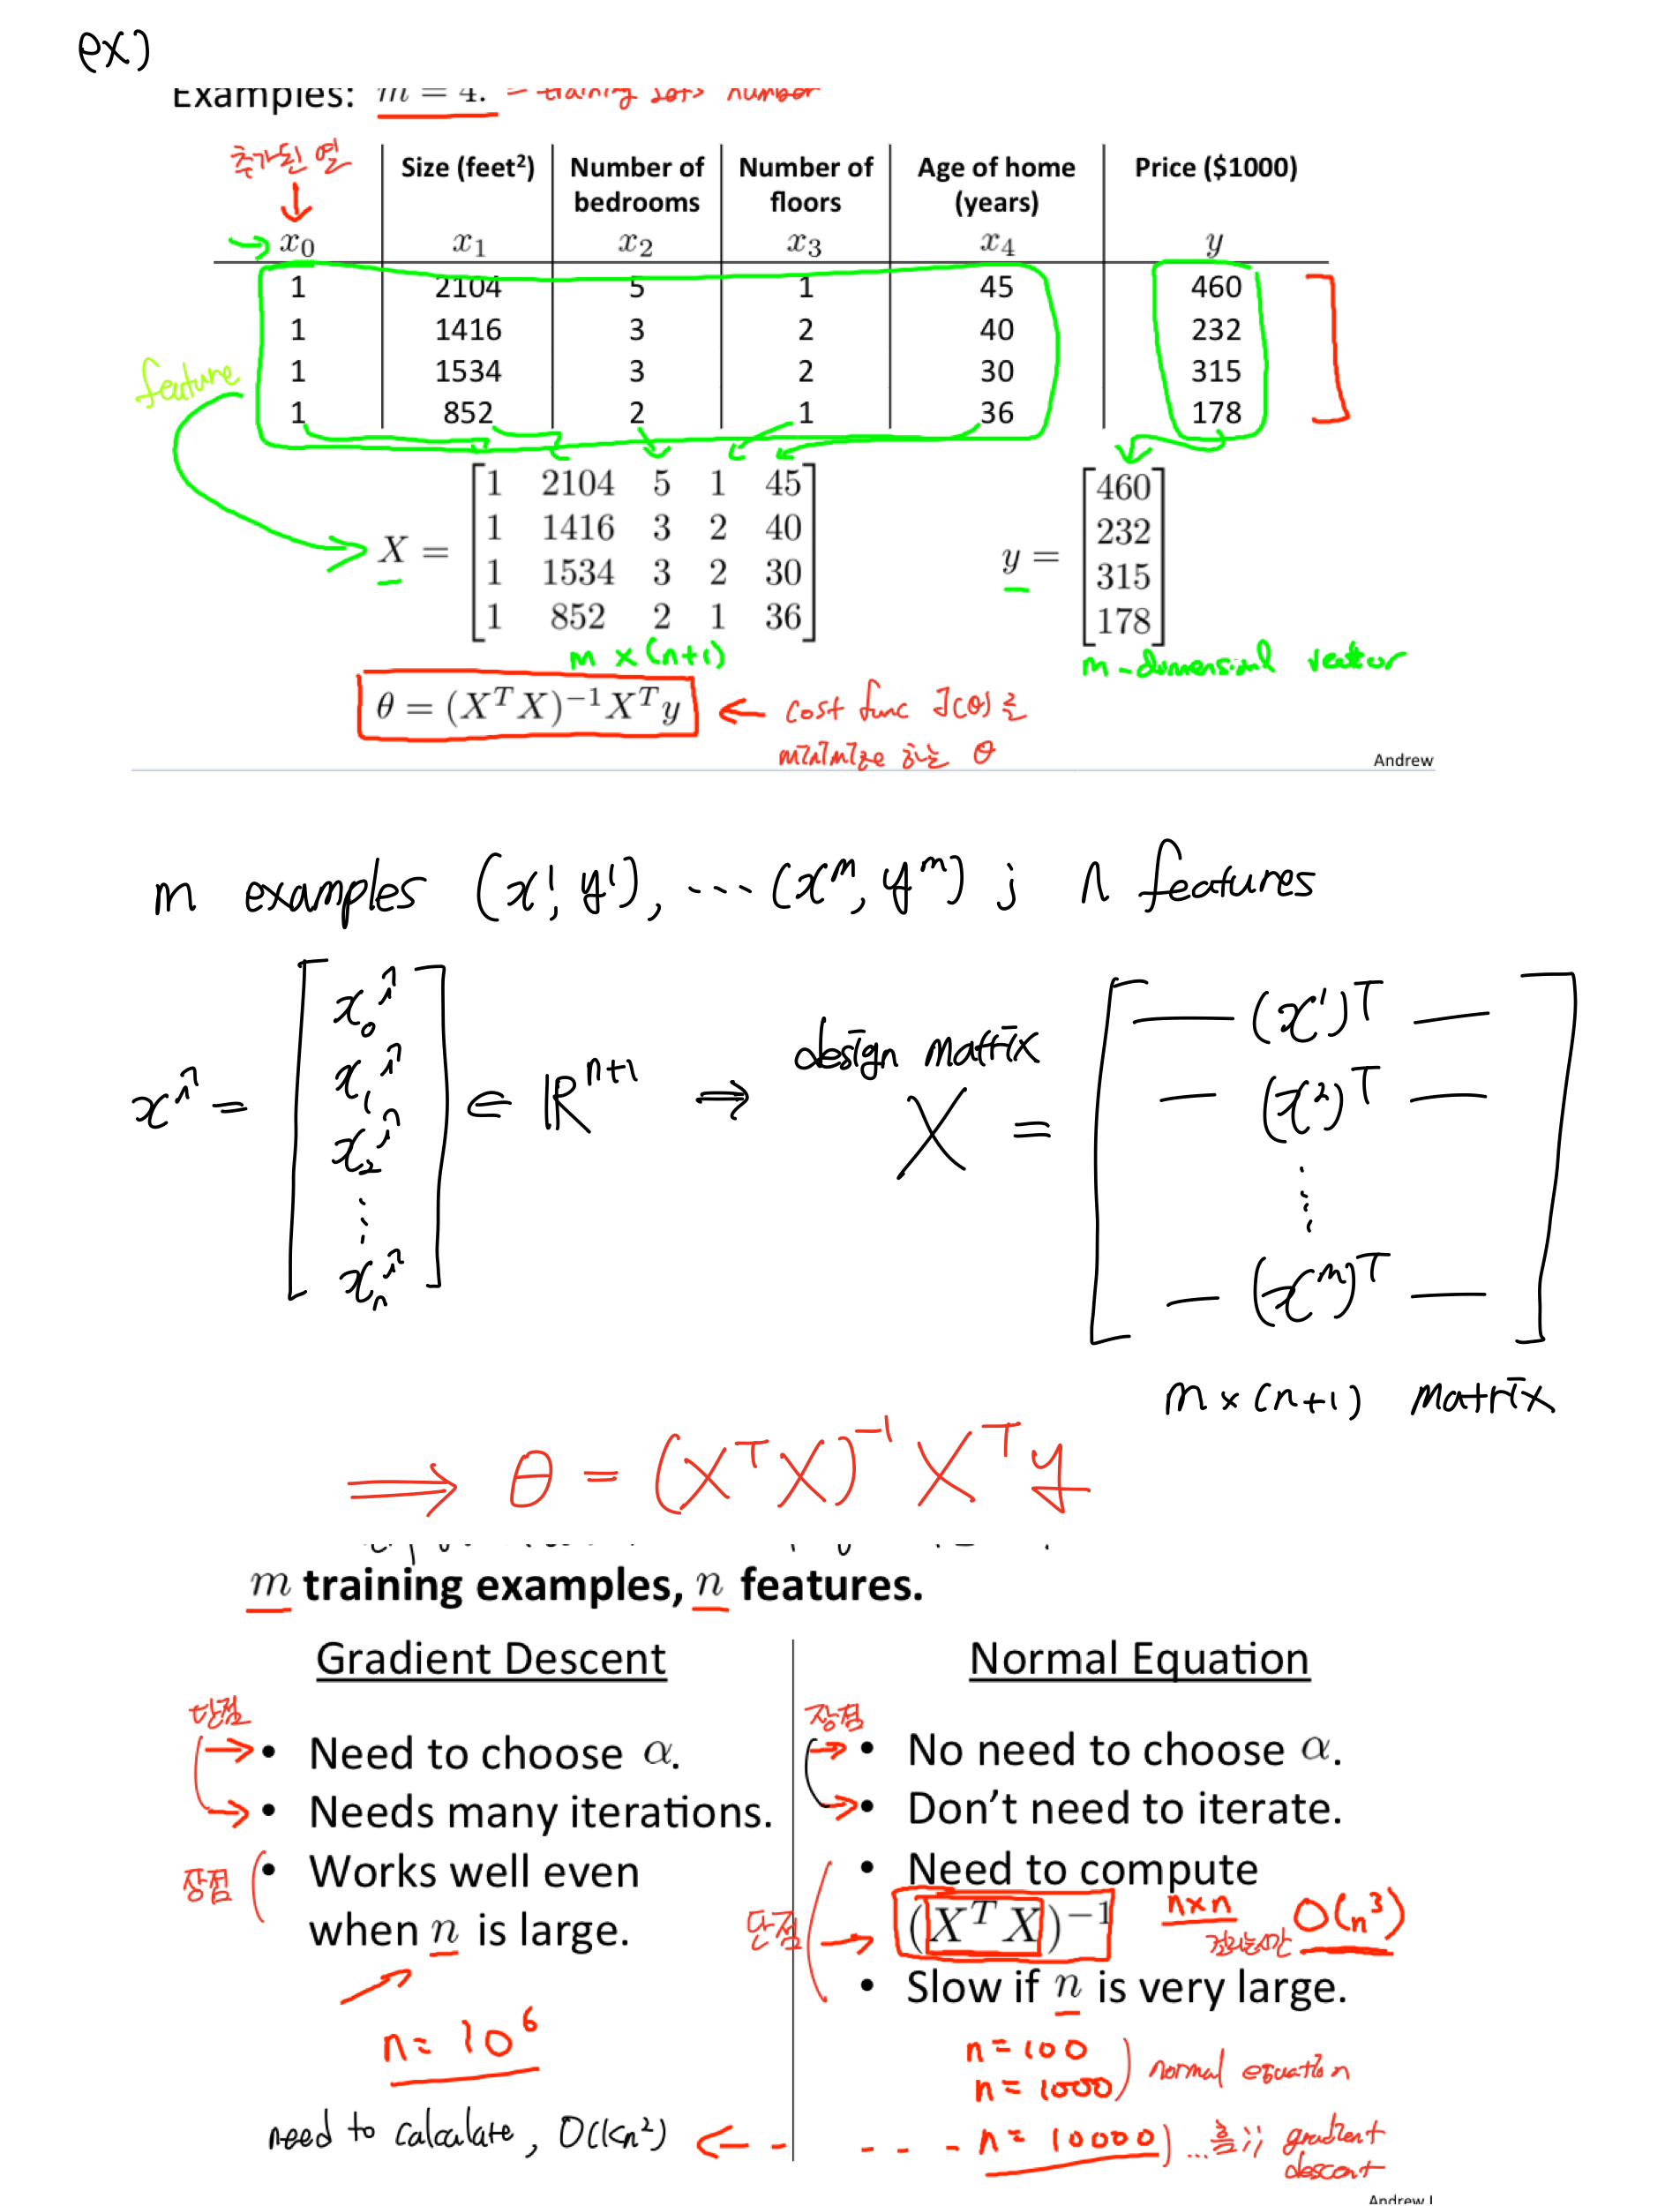 ex)
Examples: m = 4. - training sets number
추가된 열
Size (feet²) Number of bedrooms Number of floors Age of home (years) Price ($1000)
x₀ x₁ x₂ x₃ x₄ y
1 2104 5 1 45 460
1 1416 3 2 40 232
1 1534 3 2 30 315
1 852 2 1 36 178
feature
X = [1 2104 5 1 45
1 1416 3 2 40
1 1534 3 2 30
1 852 2 1 36]
m × (n+1)
y = [460
232
315
178]
m-dimensional vector
θ = (XᵀX)⁻¹Xᵀy ← cost func J(θ)를
minimize 하는 θ
Andrew
m examples (x¹, y¹), ... (xᵐ, yᵐ) ; n features
xⁱ = [x₀ⁱ
x₁ⁱ
x₂ⁱ
⋮
xₙⁱ] ∈ ℝⁿ⁺¹ ⇒ design matrix
X = [— (x¹)ᵀ —
— (x²)ᵀ —
⋮
— (xᵐ)ᵀ —]
m × (n+1) matrix
⇒ θ = (XᵀX)⁻¹Xᵀy
m training examples, n features.
Gradient Descent
단점
• Need to choose α.
• Needs many iterations.
장점
• Works well even
when n is large.
n = 10⁶
need to calculate, O(kn²)
Normal Equation
장점
• No need to choose α.
• Don't need to iterate.
단점
• Need to compute
(XᵀX)⁻¹ n×n 걸리는시간 O(n³)
• Slow if n is very large.
n = 100
n = 1000) normal equation
n = 10000) ...흠;; gradient
descent